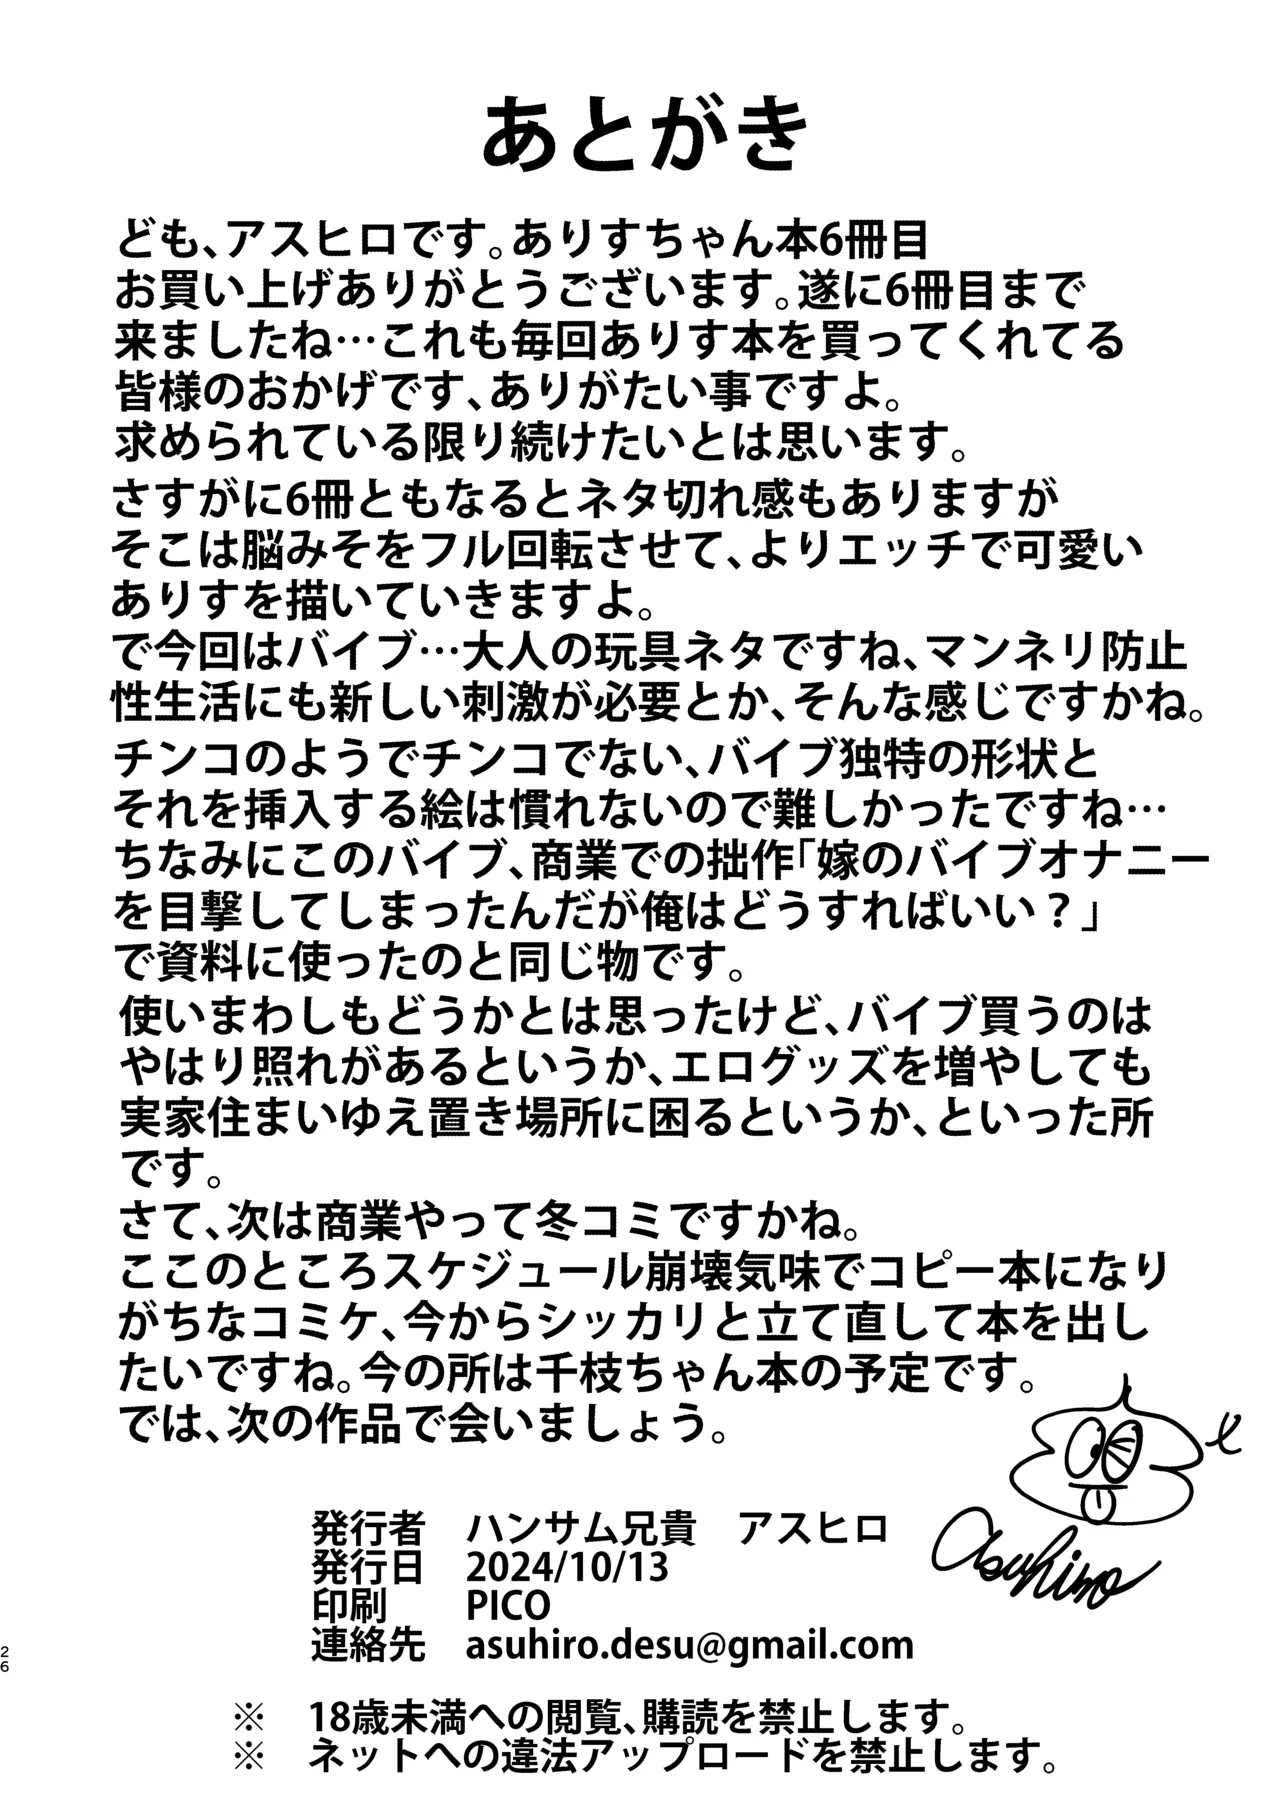 あとがき
ども、アスヒロです。ありすちゃん本6冊目
お買い上げありがとうございます。遂に6冊目まで
来ましたね…これも毎回ありす本を買ってくれてる
皆様のおかげです、ありがたい事ですよ。
求められている限り続けたいとは思います。
さすがに6冊ともなるとネタ切れ感もありますが
そこは脳みそをフル回転させて、よりエッチで可愛い
ありすを描いていきますよ。
で今回はバイブ…大人の玩具ネタですね、マンネリ防止
性生活にも新しい刺激が必要とか、そんな感じですかね。
チンコのようでチンコでない、バイブ独特の形状と
それを挿入する絵は慣れないので難しかったですね…
ちなみにこのバイブ、商業での拙作「嫁のバイブオナニー
を目撃してしまったんだが俺はどうすればいい？」
で資料に使ったのと同じ物です。
使いまわしもどうかとは思ったけど、バイブ買うのは
やはり照れがあるというか、エログッズを増やしても
実家住まいゆえ置き場所に困るというか、といった所
です。
さて、次は商業やって冬コミですかね。
ここのところスケジュール崩壊気味でコピー本になり
がちなコミケ、今からシッカリと立て直して本を出し
たいですね。今の所は千枝ちゃん本の予定です。
では、次の作品で会いましょう。
Asuhiro
発行者 ハンサム兄貴 アスヒロ
発行日 2024/10/13
印刷 PICO
連絡先 asuhiro.desu@gmail.com
※ 18歳未満への閲覧、購読を禁止します。
※ ネットへの違法アップロードを禁止します。
26